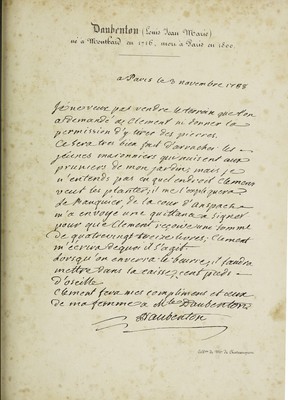 Daubenton (Louis Jean Marie)
né à Montbard en 1716, mort à Paris en 1800.
a Paris le 3 novembre 1788
je ne veux pas vendre le terrein que l'on
a demandé a Clement ni donner la
permission d'y tirer des pierres.
Ce sera tres bien fait d'arracher les
jeunes maronniers qui nuisent aux
pruniers de mon jardin, mais je
n'entends pas en quel endroit Clement
veut les planter, il me l'expliquera
le Banquier de la cour d'Anspach
m'a envoyé une quittance a signer
pour que Clement reçoive une somme
de quatrevingt livres; Clement
m'ecrira dequoi il s'agit
lorsqu'on enverra le beurre, il faudra
mettre dans la caisse cent pieds
d'oseille
Clement fera mes compliments et ceux
de ma femme a Mlle Daubenton
Daubenton